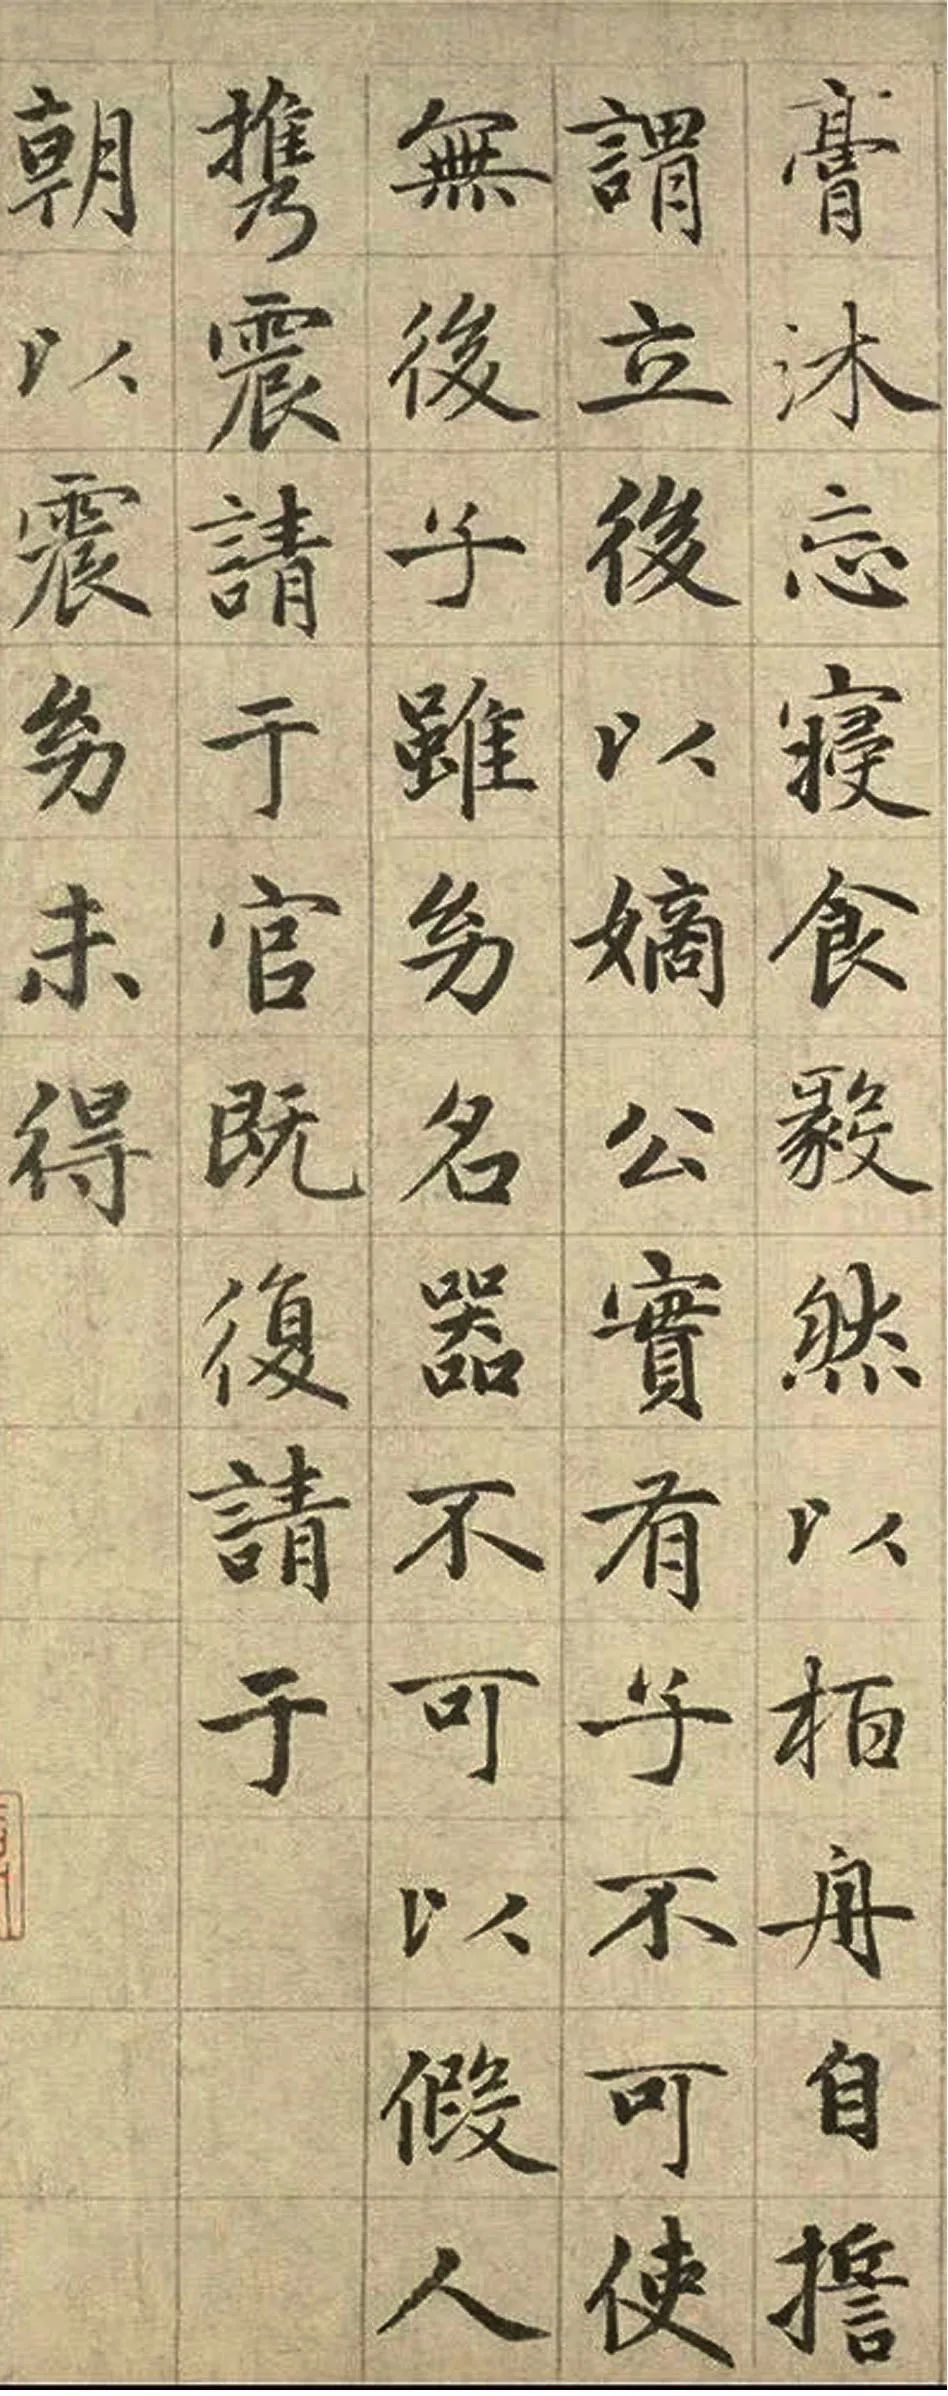 膏沐忘寝食毅然以栢舟自誓
謂立後以嫡公實有子不可使
無後子雖幼名器不可以假人
携震請于官既復請于
朝以震幼未得